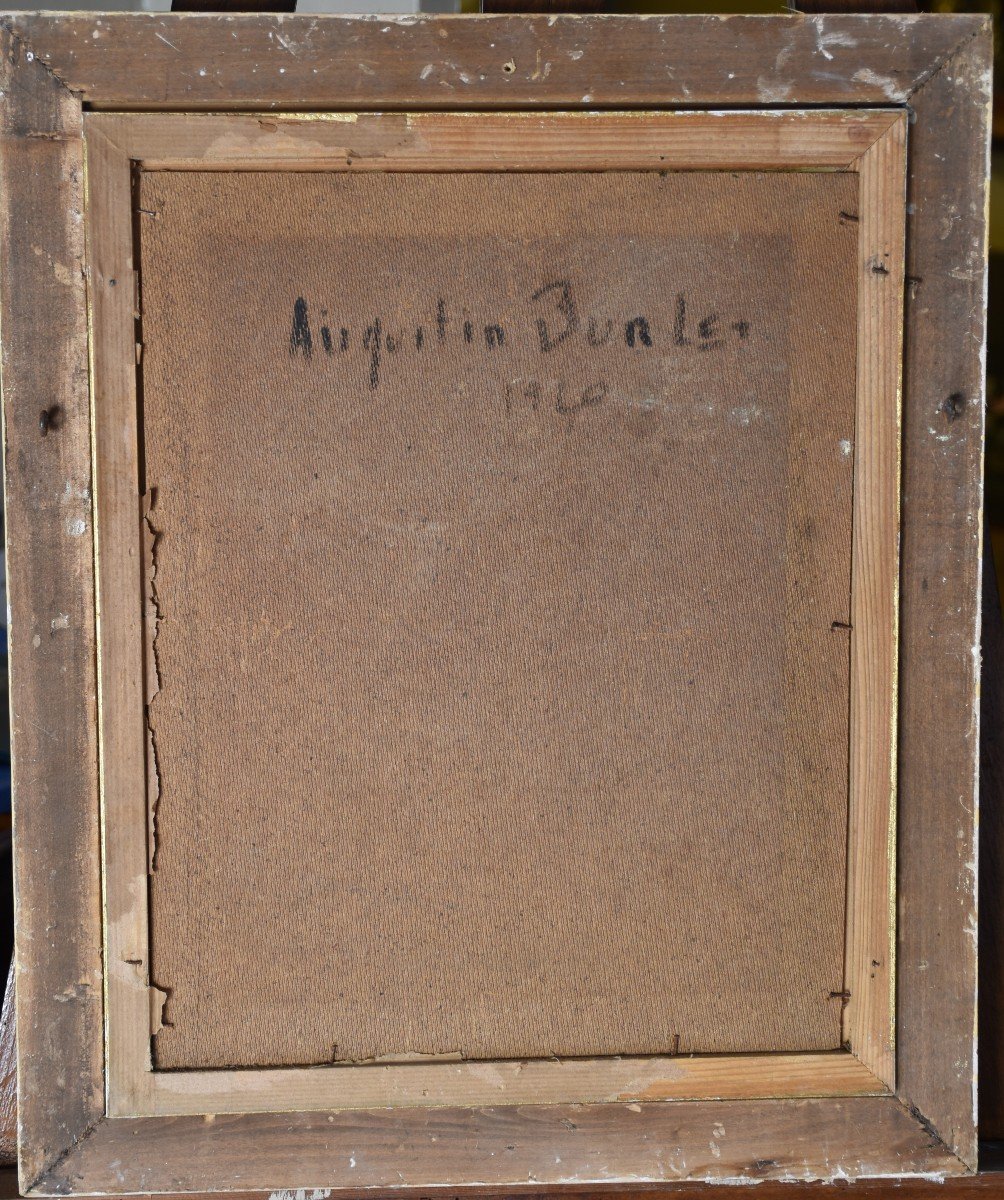 Augustin Bunlet
1960